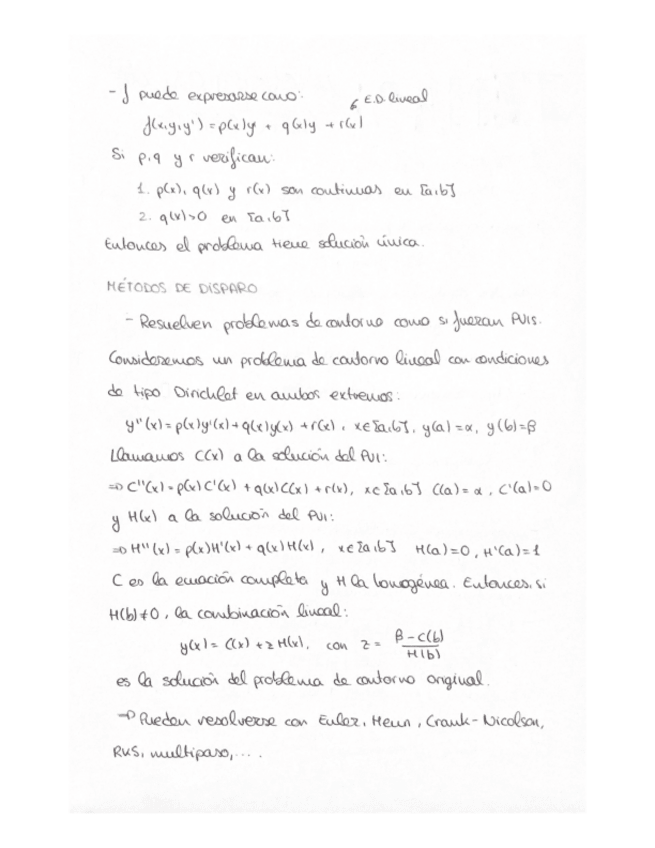 - f puede expresarse como:
↳ E.D. lineal
f(x,y,y') = p(x)y' + q(x)y + r(x)
Si p,q y r verifican:
1. p(x), q(x) y r(x) son continuas en [a,b]
2. q(x)>0 en [a,b]
Entonces el problema tiene solución única.
MÉTODOS DE DISPARO
- Resuelven problemas de contorno como si fueran PVIs.
Consideremos un problema de contorno lineal con condiciones
de tipo Dirichlet en ambos extremos:
y''(x) = p(x)y'(x) + q(x)y(x) + r(x), x∈[a,b], y(a)=α, y(b)=β
Llamamos C(x) a la solución del PVI:
⇒ C''(x) = p(x)C'(x) + q(x)C(x) + r(x), x∈[a,b] C(a)=α, C'(a)=0
y H(x) a la solución del PVI:
⇒ H''(x) = p(x)H'(x) + q(x)H(x), x∈[a,b] H(a)=0, H'(a)=1
C es la ecuación completa y H la homogénea. Entonces, si
H(b)≠0, la combinación lineal:
y(x) = C(x) + z H(x), con z = (β - C(b))/H(b)
es la solución del problema de contorno original.
→ Pueden resolverse con Euler, Heun, Crank-Nicolson,
RKS, multipaso, ....